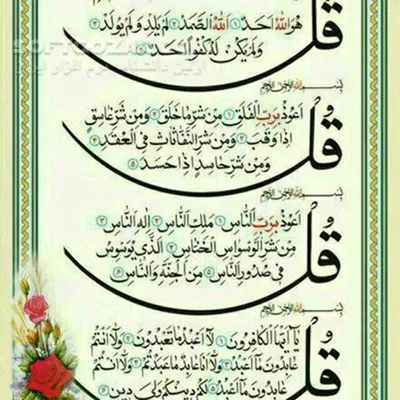 قُل
هُوَ اللهُ اَحَدٌ ۱ اَللهُ الصَّمَدُ ۲ لَم يَلِد وَلَم يُولَد ۳
وَلَم يَكُن لَهُ كُفُوًا اَحَدٌ ۴
بِسمِ اللهِ الرَّحمٰنِ الرَّحيمِ
قُل
اَعُوذُ بِرَبِّ الفَلَقِ ۱ مِن شَرِّ ما خَلَقَ ۲ وَمِن شَرِّ غاسِقٍ
اِذا وَقَبَ ۳ وَمِن شَرِّ النَّفّاثاتِ فِى العُقَدِ ۴
وَمِن شَرِّ حاسِدٍ اِذا حَسَدَ ۵
بِسمِ اللهِ الرَّحمٰنِ الرَّحيمِ
قُل
اَعُوذُ بِرَبِّ النّاسِ ۱ مَلِكِ النّاسِ ۲ اِلٰهِ النّاسِ ۳
مِن شَرِّ الوَسواسِ الخَنّاسِ ۴ اَلَّذى يُوَسوِسُ
فى صُدُورِ النّاسِ ۵ مِنَ الجِنَّةِ وَالنّاسِ ۶
بِسمِ اللهِ الرَّحمٰنِ الرَّحيمِ
قُل
يا اَيُّهَا الكافِرُونَ ۱ لا اَعبُدُ ما تَعبُدُونَ ۲ وَلا اَنتُم
عابِدُونَ ما اَعبُدُ ۳ وَلا اَنَا عابِدٌ ما عَبَدتُم ۴ وَلا اَنتُم
عابِدُونَ ما اَعبُدُ ۵ لَكُم دينُكُم وَلِىَ دينِ ۶